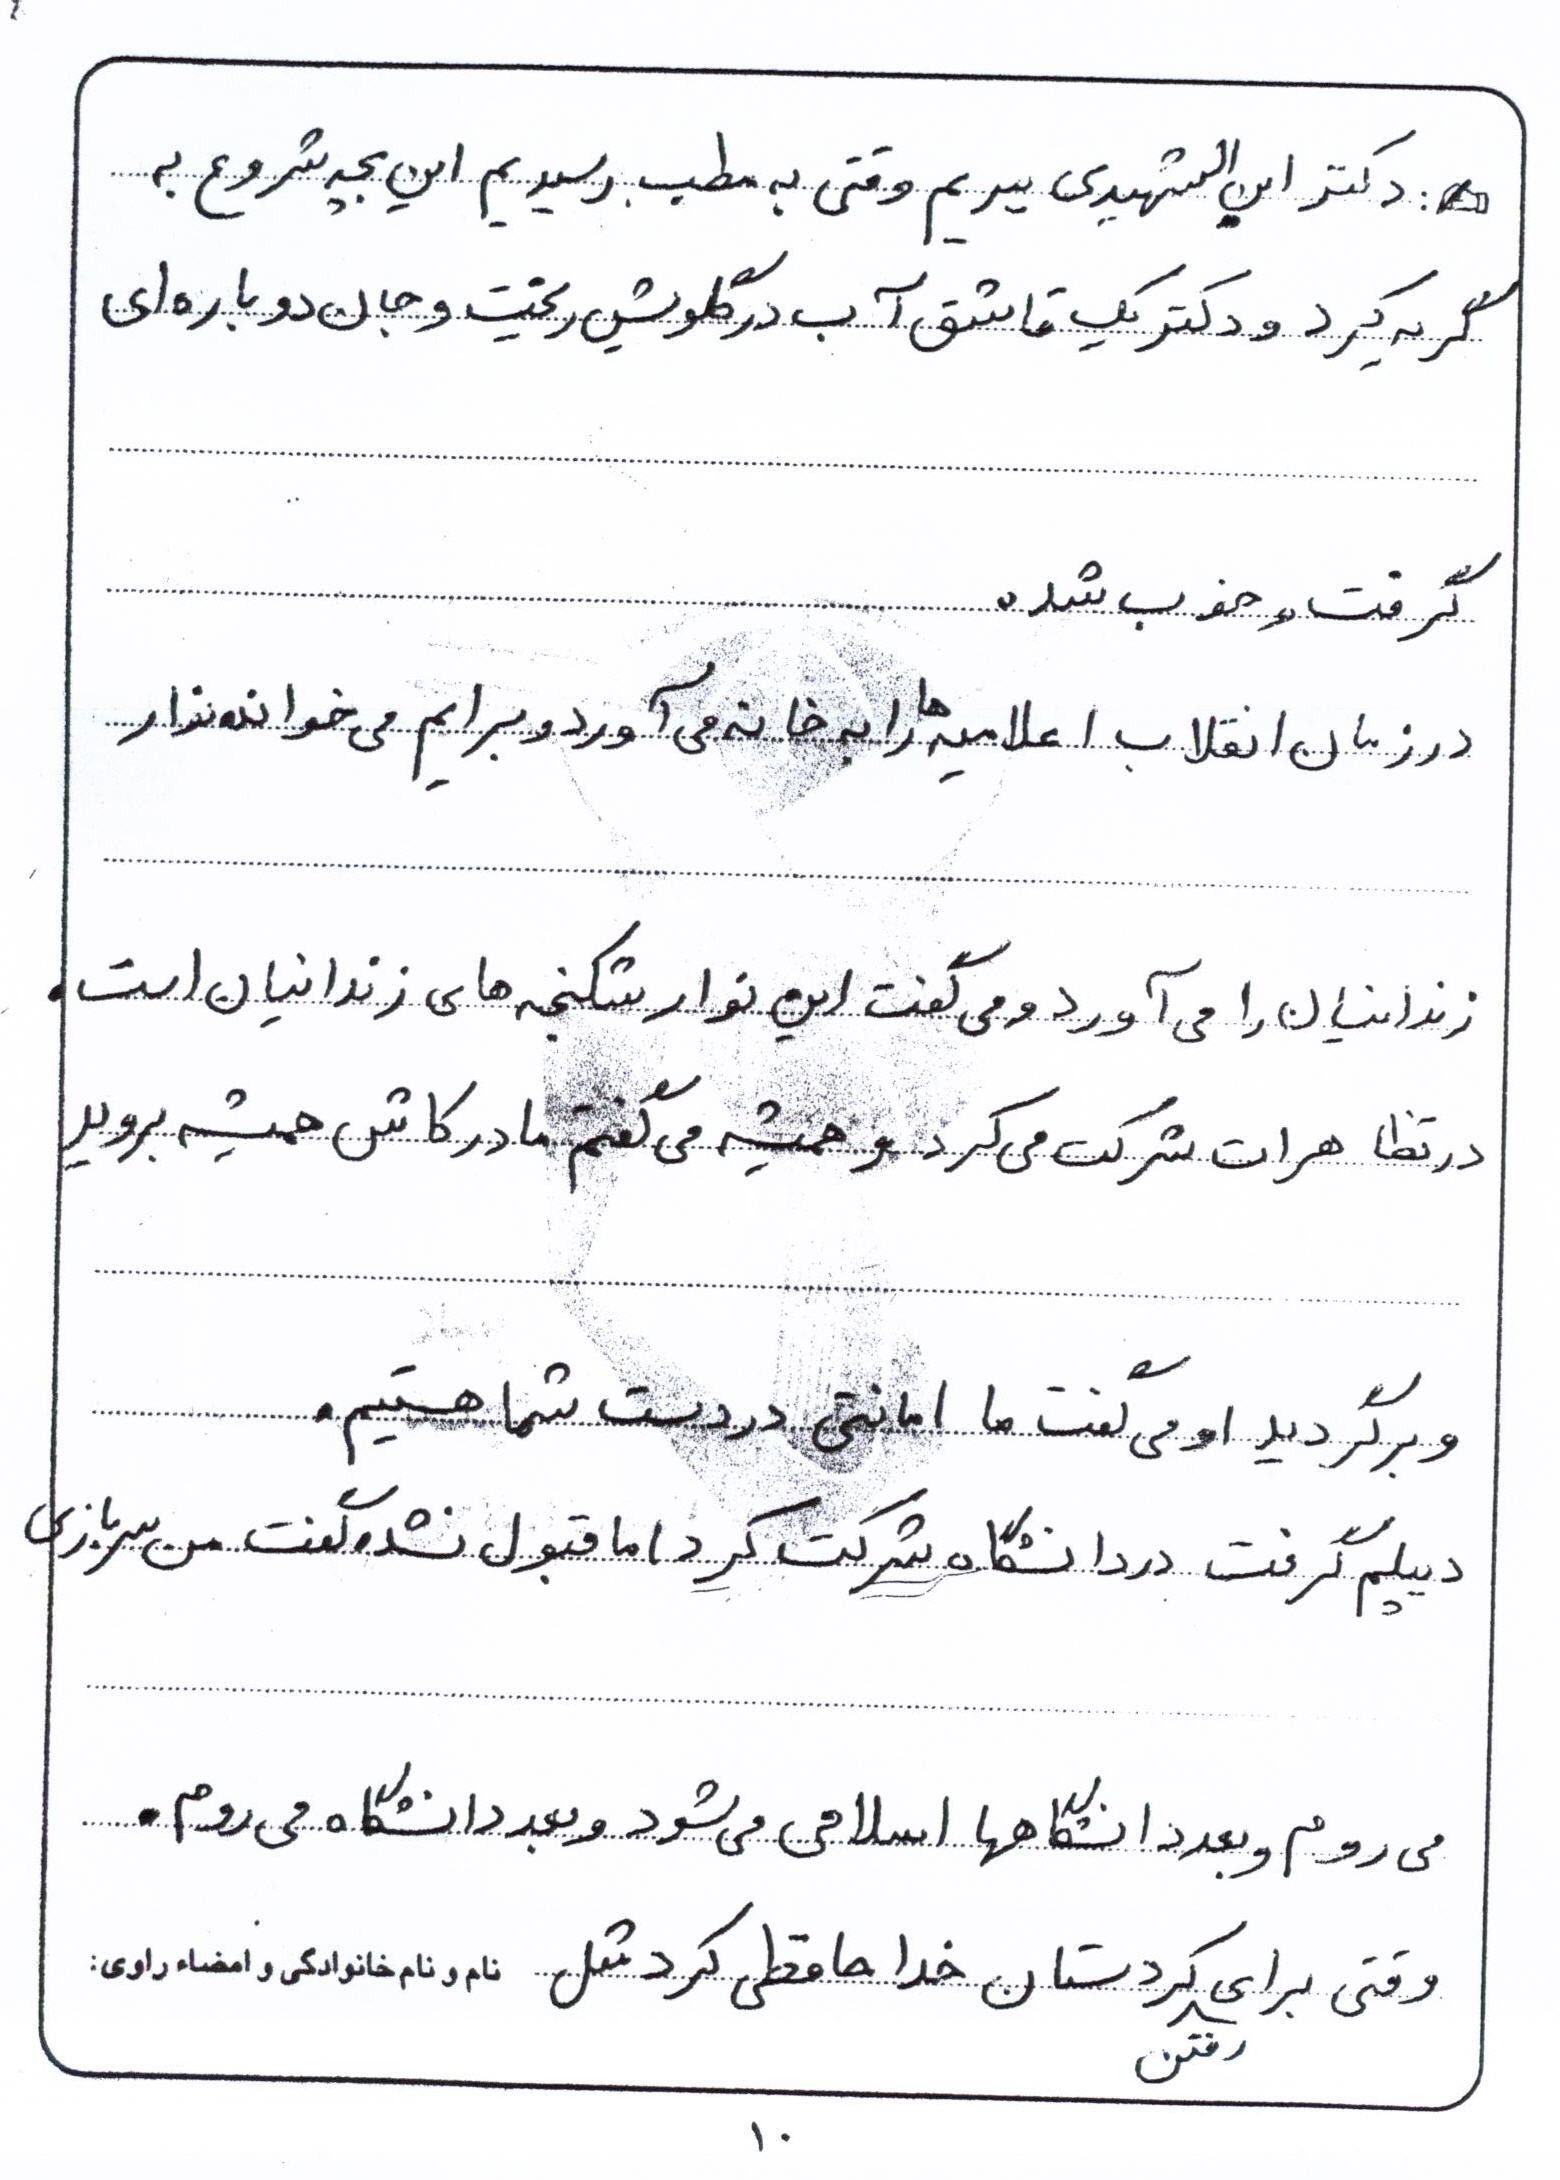 دکتر ابن الشهیدی ببریم وقتی به مطب رسیدیم این بچه شروع به
گریه کرد و دکتر یک قاشق آب در گلویش ریخت و جان دوباره‌ای
گرفت و خوب شده
در زمان انقلاب اعلامیه‌ها را به خانه می‌آورد و برایم می‌خواند نوار
زندانیان را می‌آورد و می‌گفت این نوار شکنجه‌های زندانیان است.
در تظاهرات شرکت می‌کرد و همیشه می‌گفتم مادر کاش همیشه بروید
و برگردید او می‌گفت ما امانتی در دست شما هستیم.
دیپلم گرفت در دانشگاه شرکت کرد اما قبول نشد گفت من سربازی
می‌روم و بعد دانشگاهها اسلامی می‌شود و بعد دانشگاه می‌روم.
وقتی برای رفتن کردستان خدا حافظی کرد مثل
نام و نام خانوادگی و امضاء راوی:
۱۰